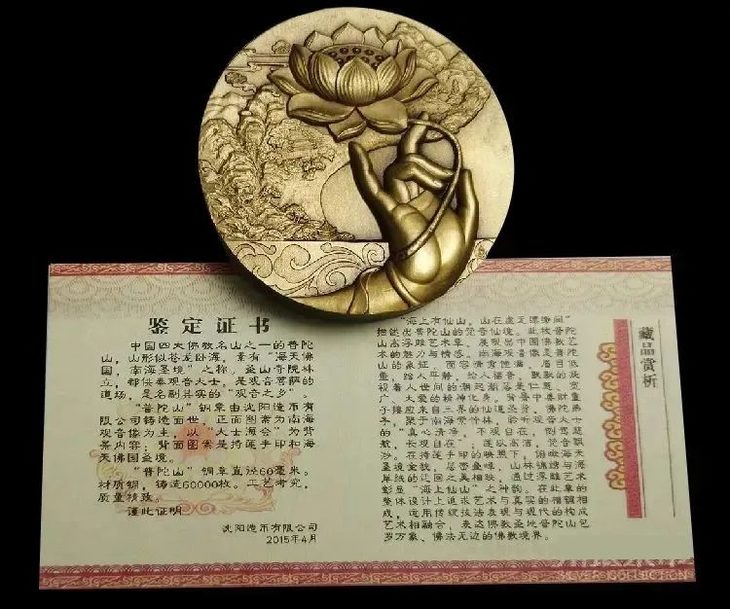 鉴定证书
中国四大佛教名山之一的普陀
山，山形似苍龙卧海，素有“海天佛
国，南海圣境”之称，全山寺院林
立，都供奉观音大士。是观音菩萨的
道场，是名副其实的“观音之乡”。
“普陀山”铜章由沈阳造币有
限公司铸造面世，正面图案为南海
观音像为主，以“大士渡会”为背
景内容；背面图案是持莲手印和海
天佛国盛境。
“普陀山”铜章直迳60毫米。
材质铜，铸造60000枚。工艺考究，
质量精致
谨此证明
沈阳造币有限公司
2015年4月
“海上有仙山，山在虚无漂渺间”
描述出普陀山的梵音仙境。此枚普陀
山高浮雕艺术章，展现出中国佛教艺
术的魅力与情感。南海观音像是普陀
山的象征，面容清资惟谱，眉目低
垂，给人平静，给人福音，飘飘的
视着人世间的潮起潮落是仁慈、宽
广、大爱的精神化身。背景中善财童
子接应来自三界的仙道圣分，佛陀弟
手，聚于南海紫竹林，聆听观音大士
的“真心清净，不观自在，倒驾慈
航，长观自在”；莲以高洁，梵音飘
渺。在持莲手印的映照下，俯瞰海天
圣境全貌，层峦叠峰，山林锦绣与海
岸线的迂回之美相映，通过浮雕艺术
彰显“海上仙山”之神韵。在此章的
整体设计上追求艺术与真实的相辅相
成，运用传统技法表现与现代的构成
艺术相融合，表达佛教圣地普陀山包
罗万象、佛法无边的佛教境界。
藏品赏析
SILVER COLLECTION